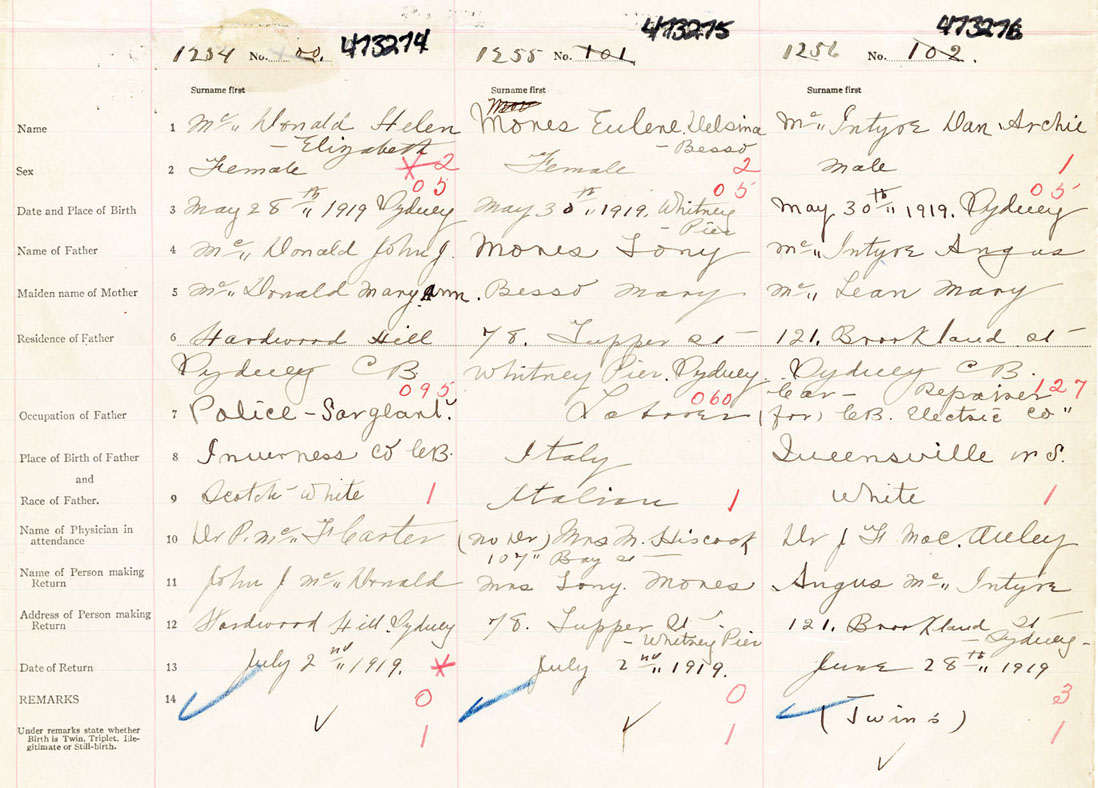 1254 No. 100. 473274 1255 No. 101 473275 1256 No. 102. 473276
Surname first Surname first Surname first
Name 1 Mc„ Donald Helen Mores Eulene. Velsina Mc„ Intyre Dan Archie
– Elizabeth – Besso
Sex 2 Female 2 Female 2 male 1
05 05 05
Date and Place of Birth 3 May 28th„ 1919 Sydney May 30th„ 1919. Whitney May 30th„ 1919. Sydney
– Pier
Name of Father 4 Mc„ Donald John J. Mores Tony Mc„ Intyre Angus
Maiden name of Mother 5 Mc„ Donald Mary Ann. Besso Mary Mc„ Lean Mary
Residence of Father 6 Hardwood Hill 78. Tupper st – 121. Brookland st –
Sydney C B Whitney Pier. Sydney Sydney C B.
095 060 Car – Repairer 127
Occupation of Father 7 Police – Sargeant. Laborer (for) C.B. Electric Co"
Place of Birth of Father 8 Inverness Co C.B. Italy Queensville N S.
and
Race of Father. 9 Scotch – White 1 Italian 1 White 1
Name of Physician in
attendance 10 Dr P. Mc„ F Carter (no Dr) Mrs M. Hiscock Dr J F Mac. Auley
107" Bay st –
Name of Person making
Return 11 John J Mc„ Donald Mrs Tony. Mores Angus Mc„ Intyre
Address of Person making
Return 12 Hardwood Hill. Sydney 78. Tupper St. 121. Brookland St –
– Whitney Pier – Sydney –
Date of Return 13 July 2nd„ 1919. July 2nd„ 1919. June 28th„ 1919
REMARKS 14 0 0 3
(Twins)
Under remarks state whether
Birth is Twin, Triplet, Ille-
gitimate or Still-birth. 1 1 1